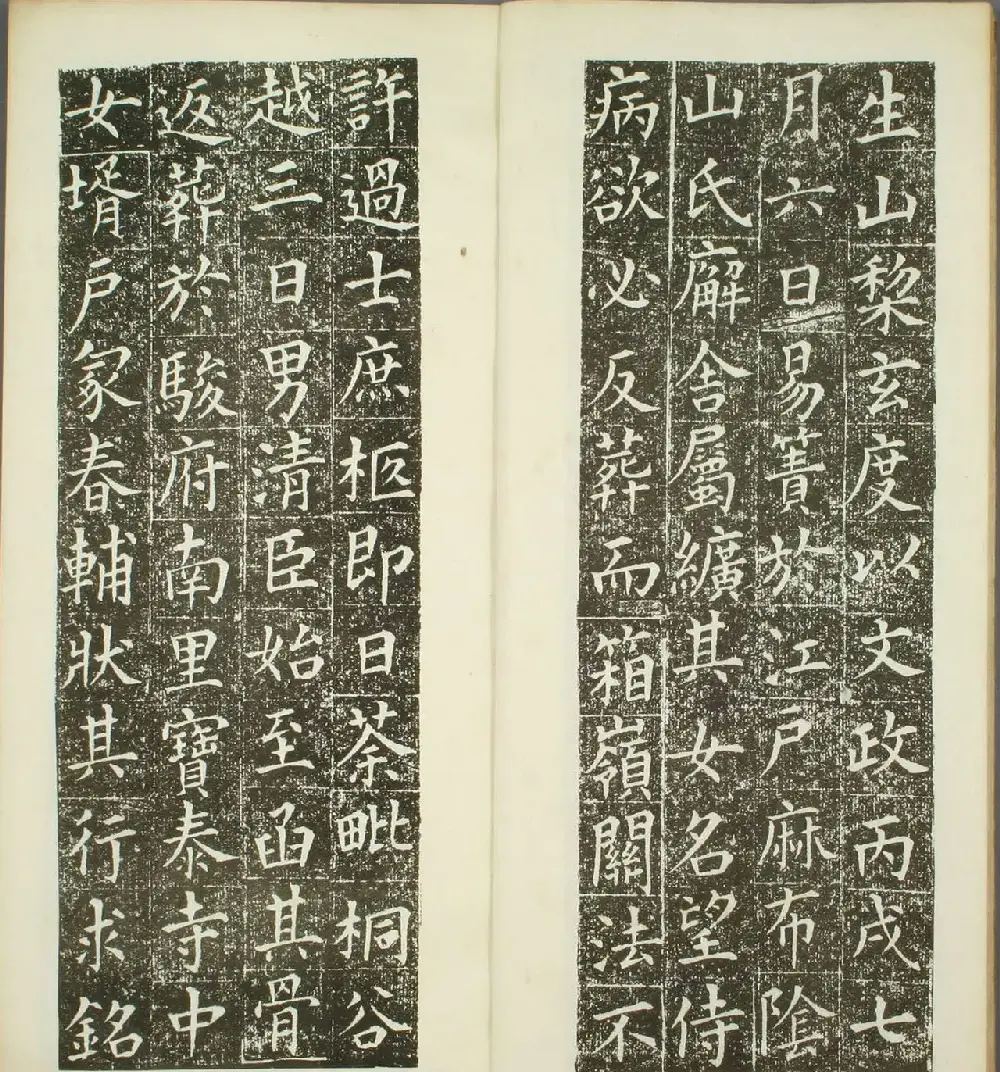 生山梨玄度以文政丙戌七
月六日易簀於江戶麻布陰
山氏廨舍屬纊其女名望侍
病欲必反葬而箱嶺關法不
許過士庶柩即日荼毗桐谷
越三日男清臣始至函其骨
返葬於駿府南里寶泰寺中
女壻戶冢春輔狀其行求銘